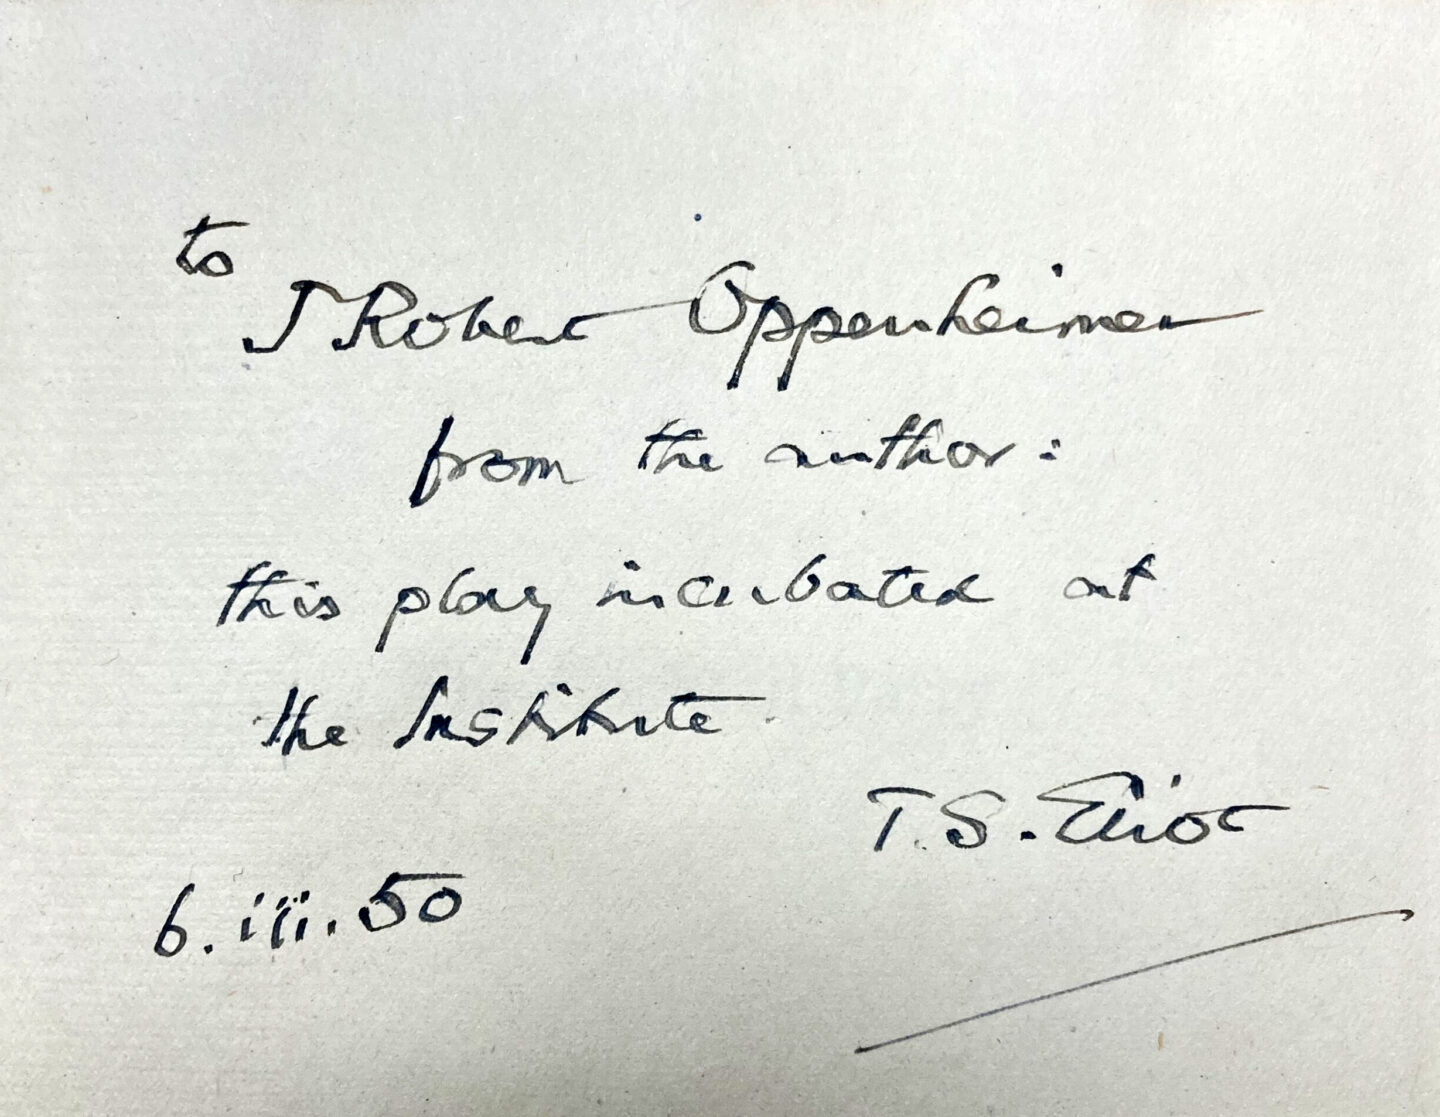 to
J Robert Oppenheimer
from the author:
this play incubated at
the Institute.
T.S. Eliot
6.iii.50